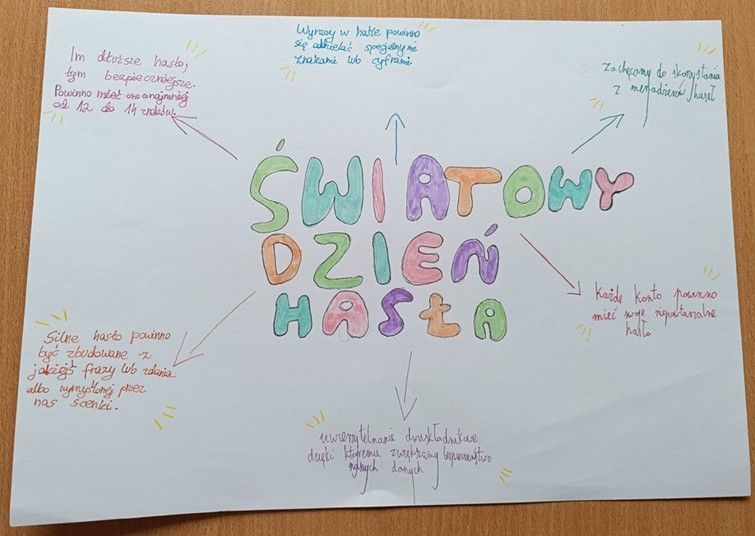 Im dłuższe hasło,
tym bezpieczniejsze.
Powinno mieć ono conajmniej
od 12 do 14 znaków.
Wyrazy w haśle powinno
się oddzielać specjalnymi
znakami lub cyframi
Zachęcamy do skorzystania
z menadżerów haseł
ŚWIATOWY
DZIEŃ
HASŁA
Każde konto powinno
mieć swoje niepowtarzalne
hasło
Silne hasło powinno
być zbudowane z
jakiejś frazy lub zdania
albo wymyślonej przez
nas scenki.
uwierzytelnianie dwuskładnikowe
dzięki któremu zwiększamy bezpieczeństwo
danych